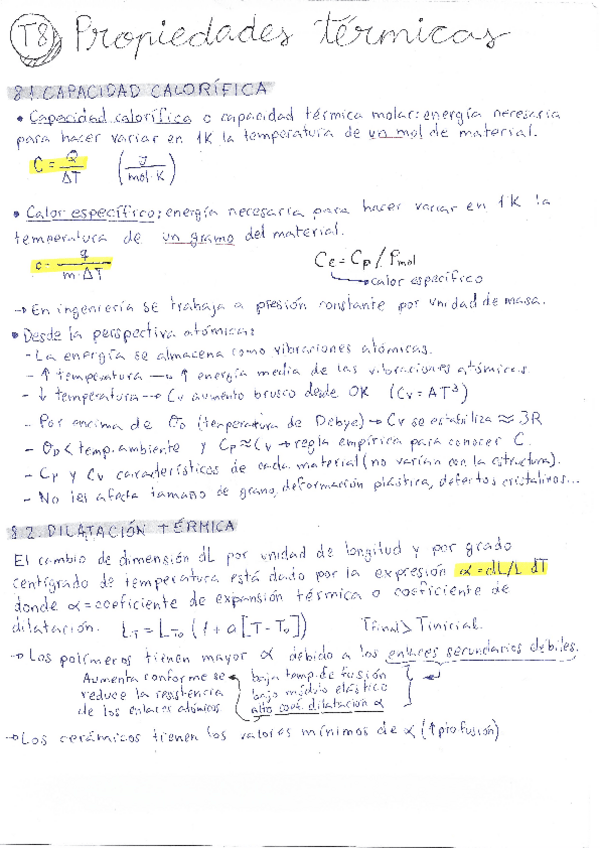 T8 Propiedades térmicas
8.1. CAPACIDAD CALORÍFICA
• Capacidad calorífica o capacidad térmica molar: energía necesaria
para hacer variar en 1K la temperatura de un mol de material.
C = Q/ΔT (J/mol·K)
• Calor específico: energía necesaria para hacer variar en 1K la
temperatura de un gramo del material.
c = q/m·ΔT Ce = Cp/Pmol
→ calor específico
→ En ingeniería se trabaja a presión constante por unidad de masa.
• Desde la perspectiva atómica:
- La energía se almacena como vibraciones atómicas.
- ↑ temperatura → ↑ energía media de las vibraciones atómicas
- ↓ temperatura → Cv aumento brusco desde 0K (Cv = AT³)
- Por encima de θD (temperatura de Debye) → Cv se estabiliza ≈ 3R
- θD < temp. ambiente y Cp ≈ Cv → regla empírica para conocer C.
- Cp y Cv característicos de cada material (no varían con la estructura).
- No les afecta tamaño de grano, deformación plástica, defectos cristalinos...
8.2. DILATACIÓN TÉRMICA
El cambio de dimensión dL por unidad de longitud y por grado
centígrado de temperatura está dado por la expresión α = dL/L dT
donde α = coeficiente de expansión térmica o coeficiente de
dilatación. LT = LT0 (1 + α[T - T0]) Tfinal > Tinicial.
→ Los polímeros tienen mayor α debido a los enlaces secundarios débiles.
Aumenta conforme se baja temp. de fusión
reduce la resistencia bajo módulo elástico
de los enlaces atómicos alto coef. dilatación α
→ Los cerámicos tienen los valores mínimos de α (↑ pto fusión)